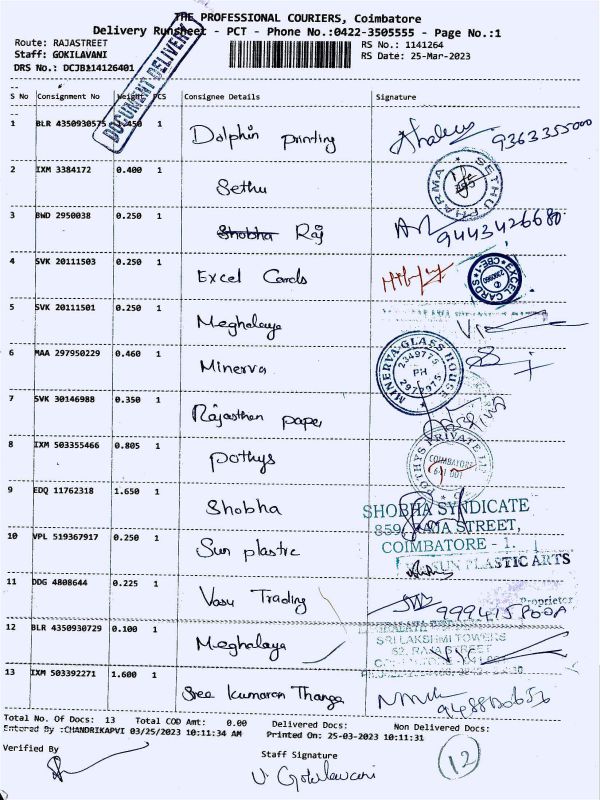 THE PROFESSIONAL COURIERS, Coimbatore
Delivery Runsheet - PCT - Phone No.:0422-3505555 - Page No.:1
Route: RAJASTREET RS No.: 1141264
Staff: GOKILAVANI RS Date: 25-Mar-2023
DRS No.: DCJB114126401
DOCUMENT DELIVERY
S No Consignment No Weight PCS Consignee Details Signature
1 BLR 4350930575 1.450 1 Dolphin printing 9363355000
2 IXM 3384172 0.400 1 Sethu
SETHU PHARMA
3 BWD 2950038 0.250 1 Shobha Raj 9443426680
4 SVK 20111503 0.250 1 Excel Cards
EXCEL CARDS CBE-1
5 SVK 20111501 0.250 1 Meghalaya
6 MAA 297950229 0.460 1 Minerva
MINERVA GLASS HOUSE
2349775
PH
2972975
7 SVK 30146988 0.350 1 Rajasthan paper
8 IXM 503355466 0.805 1 pothys
POTHYS PRIVATE
COIMBATORE
641 001
9 EDQ 11762318 1.650 1 Shobha
SHOBHA SYNDICATE
859, RAJA STREET,
COIMBATORE - 1.
10 VPL 519367917 0.250 1 Sun plastic
SUN PLASTIC ARTS
Proprietor
11 DDG 4808644 0.225 1 Vasu Trading
12 BLR 4350930729 0.100 1 Meghalaya
SRI LAKSHMI TOWERS
52, RAJA STREET
13 IXM 503392271 1.600 1 Sree Kumaran Thanga
Total No. Of Docs: 13 Total COD Amt: 0.00 Delivered Docs: Non Delivered Docs:
Entered By :CHANDRIKAPVI 03/25/2023 10:11:34 AM Printed On: 25-03-2023 10:11:31
Verified By Staff Signature 12
V. Gokilavani